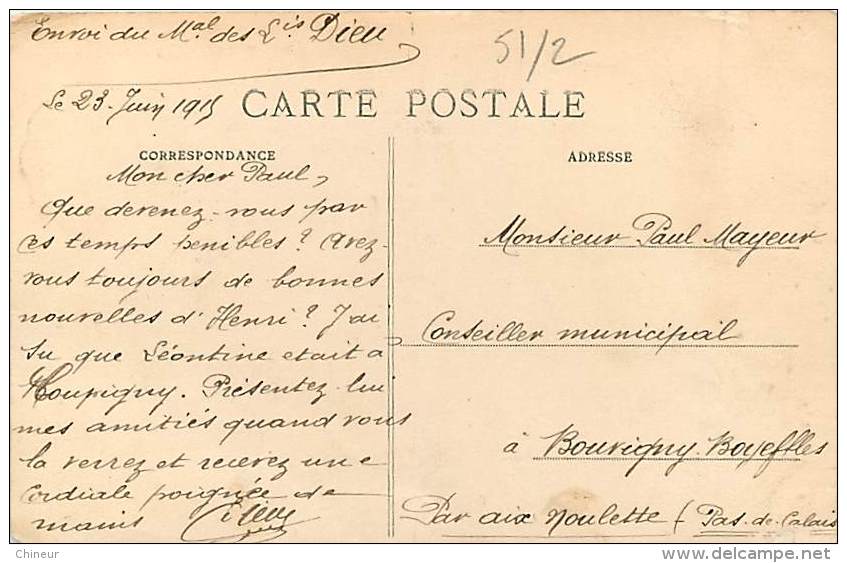 Envoi du Mal des Lis Dieu
51/2
Le 23 Juin 1915
CARTE POSTALE
CORRESPONDANCE
Mon cher Paul,
Que devenez-vous par
ces temps penibles? Avez-
vous toujours de bonnes
nouvelles d'Henri? J'ai
su que Léontine etait à
Houpigny. Présentez-lui
mes amitiés quand vous
la verrez et recevez une
Cordiale poignée de
mains Dieu
ADRESSE
Monsieur Paul Mayeur
Conseiller municipal
à Bouvigny-Boyeffles
Par aix Noulette (Pas-de-Calais
Chineur
www.delcampe.net